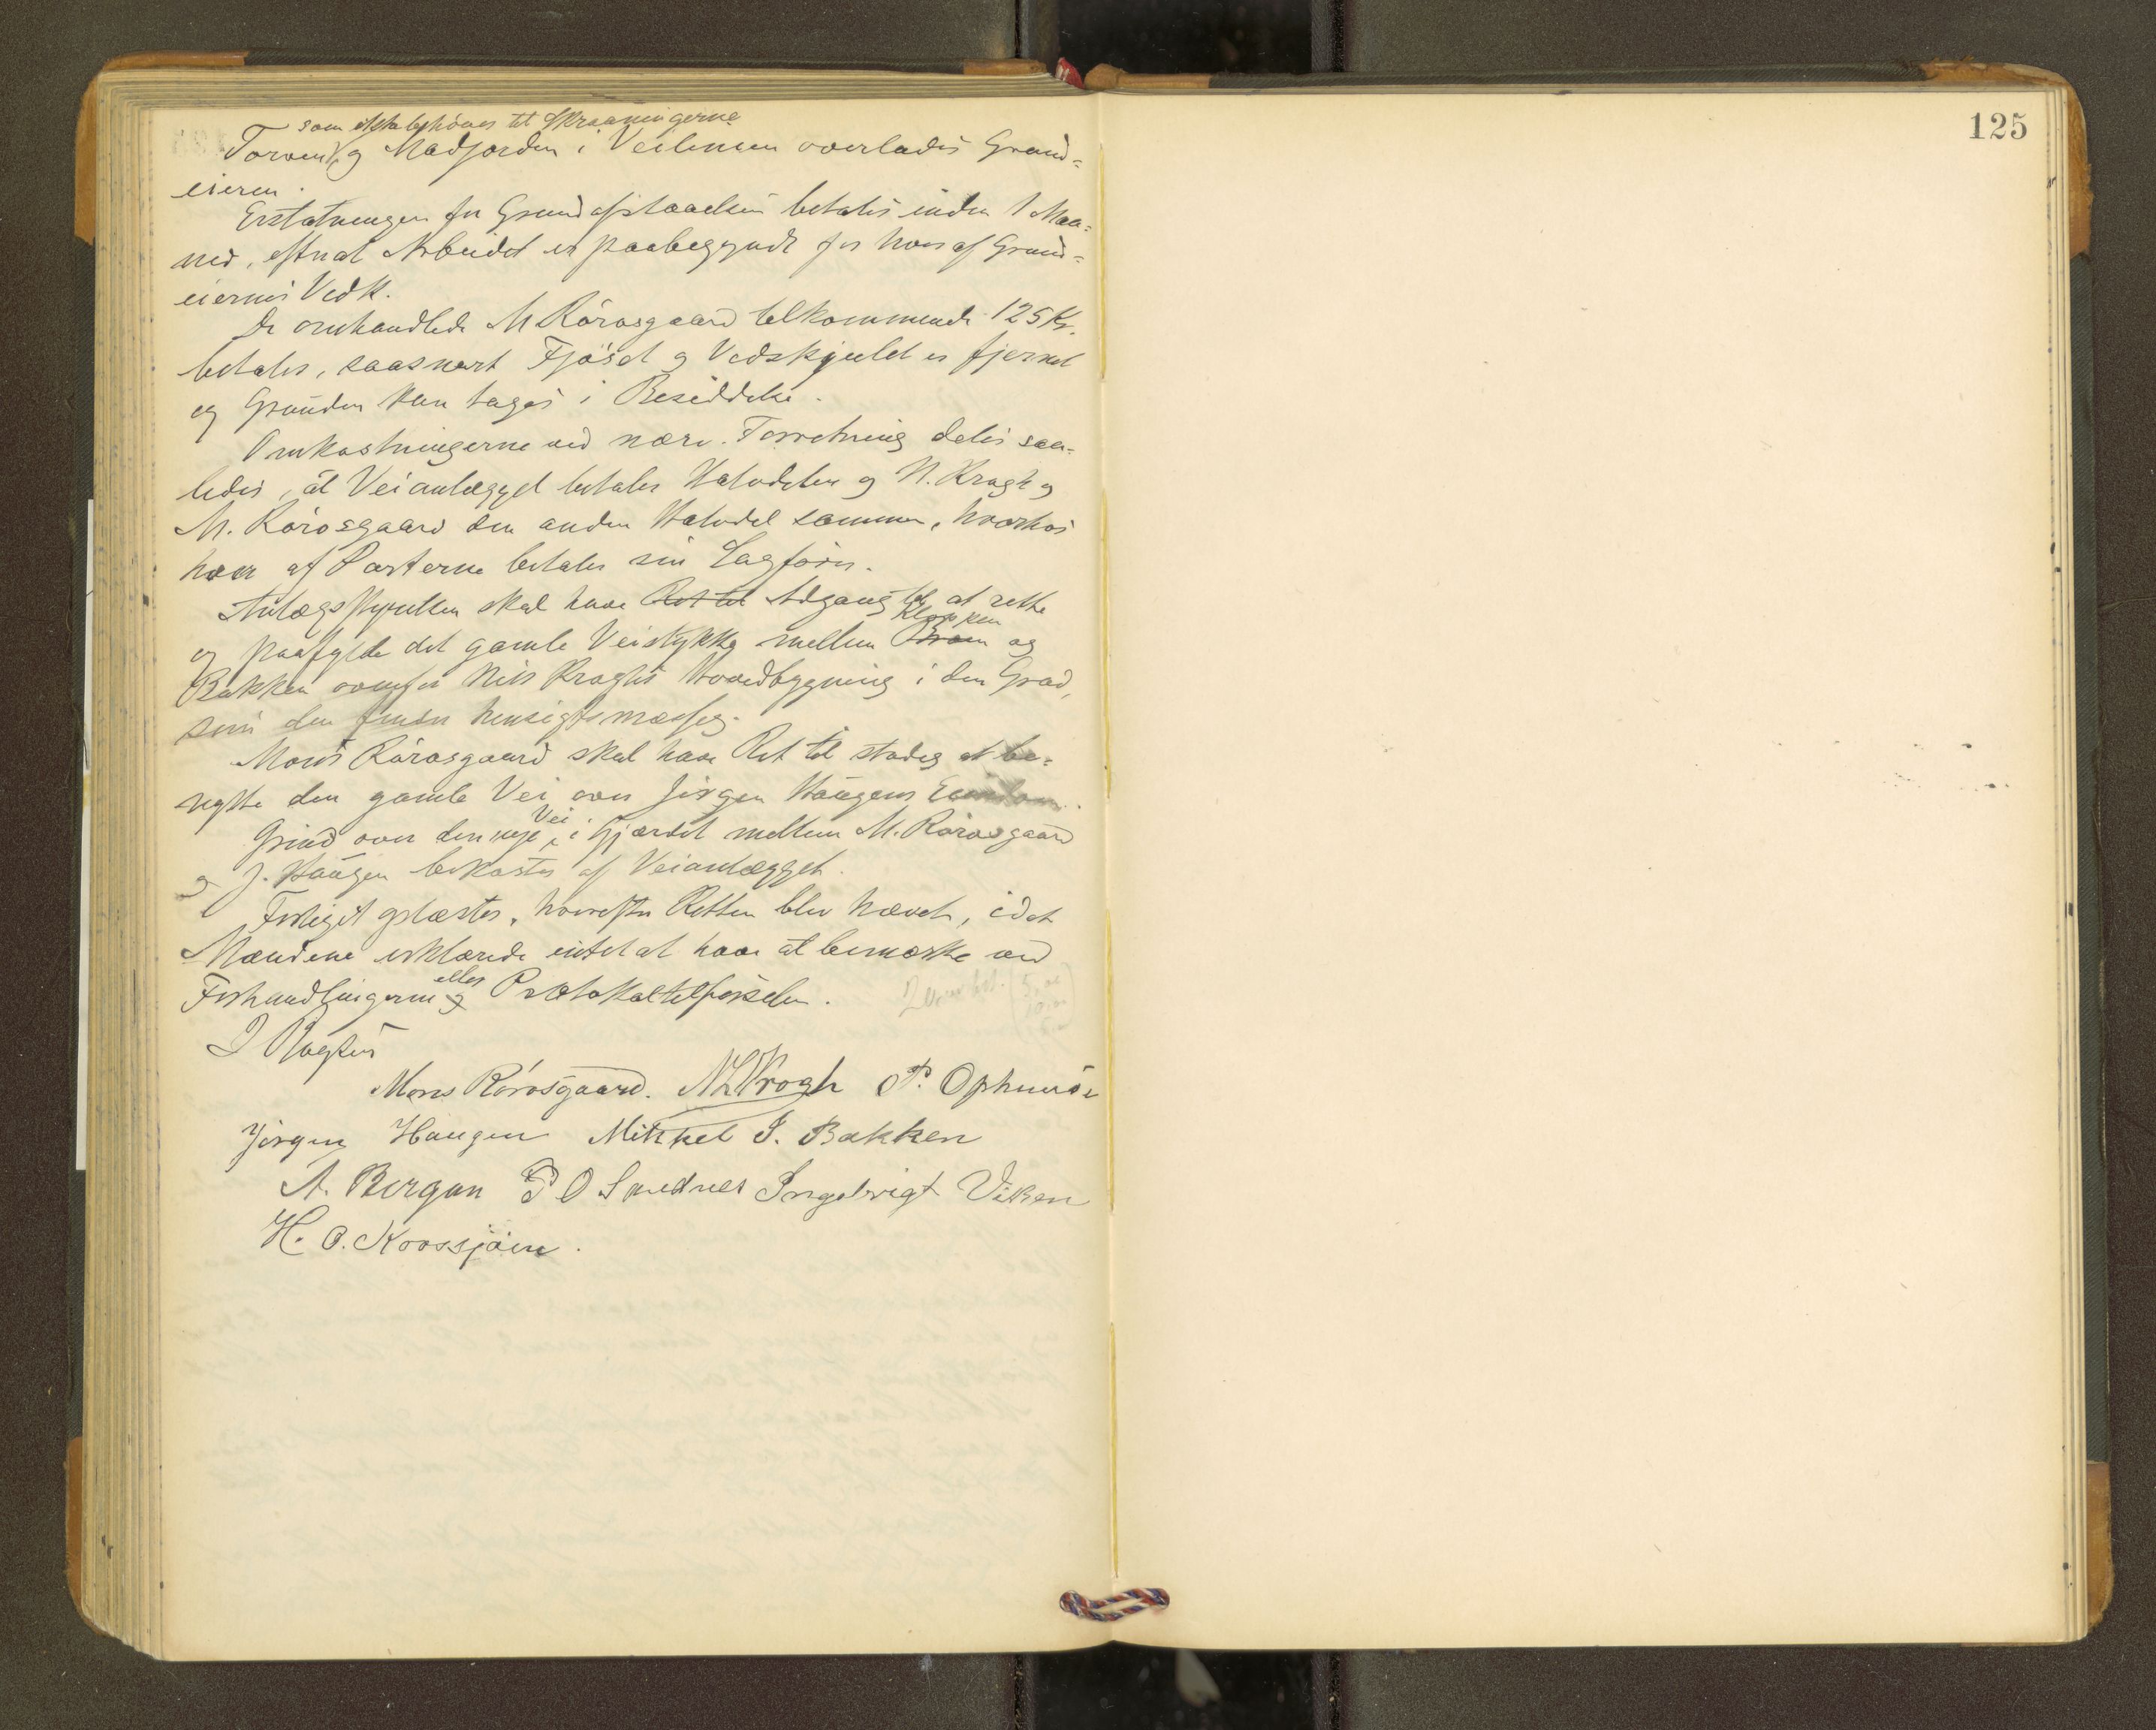 som ikke behöves til Skraaningerne
Torven og Madjorden i Veilinien overlades Grund=
eieren.
Erstatningen for Grundafstaaelsen betales inden 1 Maa=
ned, efterat Arbeidet er paabegyndt for hver af Grund=
eiernes Vedk.
De omhandlede M Rörosgaard tilkommende 125 Kr.
betales, saasnart Fjöset og Vedskjulet er fjernet
og Grunden kan tages i Besiddelse.
Omkostningerne ved nærv. Forretning deles saa=
ledes, at Veianlægget betaler Halvdelen og N. Krogh og
M. Rörosgaard den anden Halvdel sammen, hvorhos
hver af Parterne betaler sin Sagförer.
Anlægsstyrelsen skal have Ret til Adgang til at rette
og paafylde det gamle Veistykke mellem Broen Kloppen og
Bakken ovenfor Nils Kroghs Hovedbygning i den Grad,
som den finder hensigtsmæssig.
Mons Rörosgaard skal have Ret til stadig at be=
nytte den gamle Vei over Jörgen Haugens Eiendom.
Grind over den nye Vei i Gjærdet mellem M. Rörosgaard
og J. Haugen bekostes af Veianlægget.
Forliget oplæstes, hvorefter Retten blev hævet, idet
Mændene erklærede intet at have at bemærke ved
Forhandlingerne og eller Protokoltilförselen.
Mons Rörosgaard. N L Krogh P. Ophus
Jörgen Haugen Mikkel J. Bakken
A. Bergan P O Sundnes Ingebrigt Viken
H. O. Korssjöen.
125